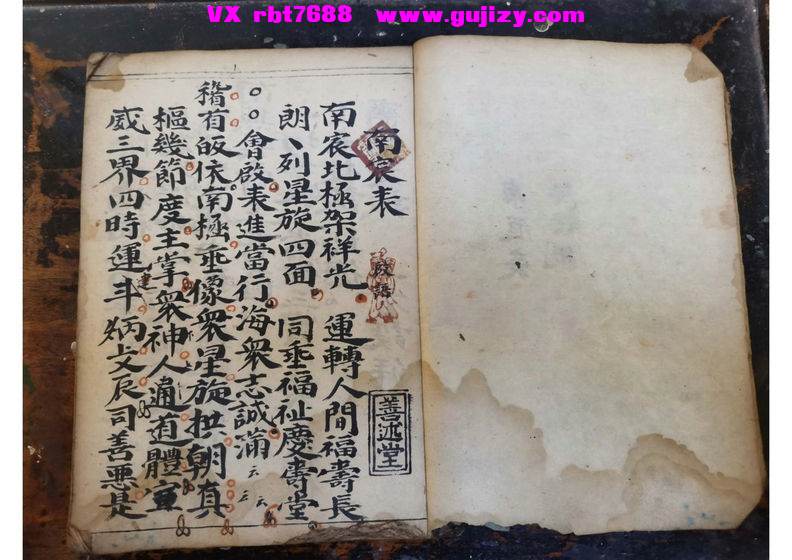 VX rbt7688   www.gujizy.com
南宸表
善述堂
南宸北極架祥光 運轉人間福壽長
朗丶列星旋四面 同垂福祉慶壽堂
○○會啟表進當行海衆志誠滿
稽首皈依南極垂像衆星旋拱朝真
樞幾節度主掌衆神人通道體宣
威三界四時運斗炳文辰司善惡是